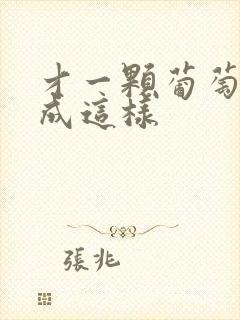 才一顆葡萄
成這樣
張兆